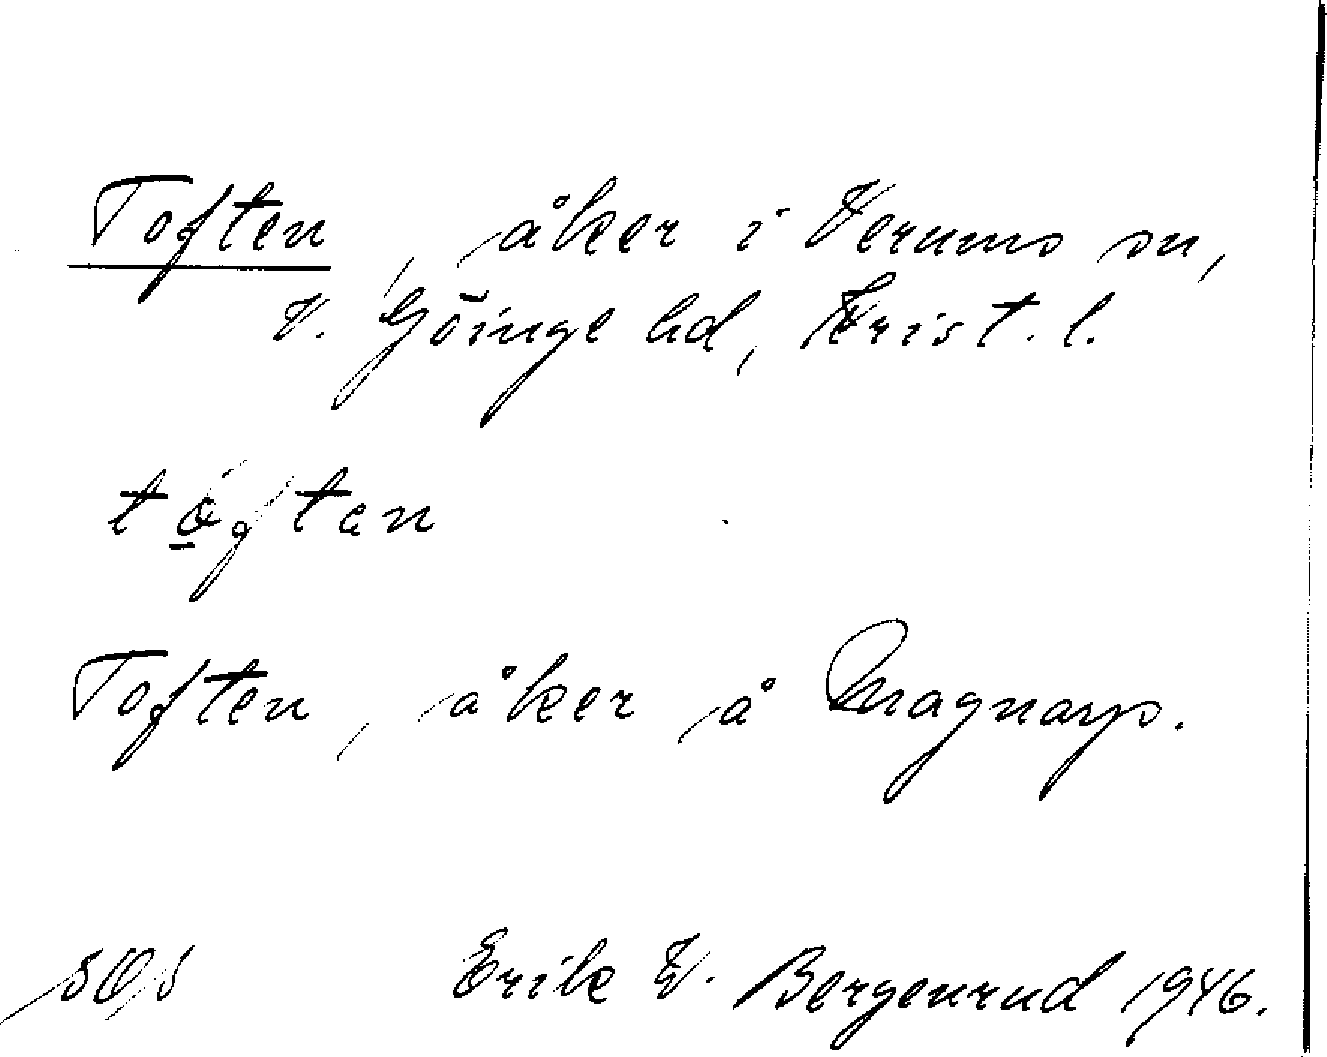 Toften, åker i Verums sn,
V. Göinge hd, Krist. l.
tóften
Toften, åker å Magnarp.
Erik W. Bergenrud 1946.